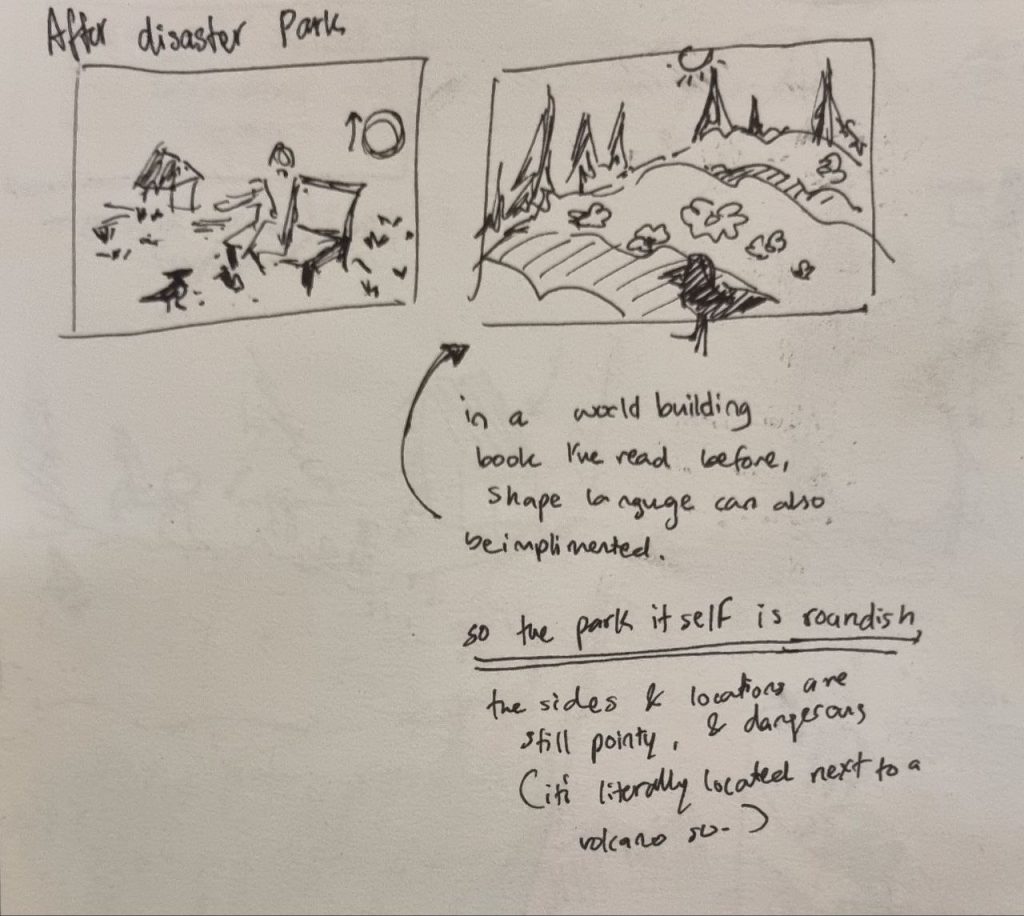 After disaster Park
in a world building
book I've read before,
shape languge can also
beimplimented.
so the park itself is roundish
the sides & locations are
still pointy, & dangerous
(it's literally located next to a
volcano so-)